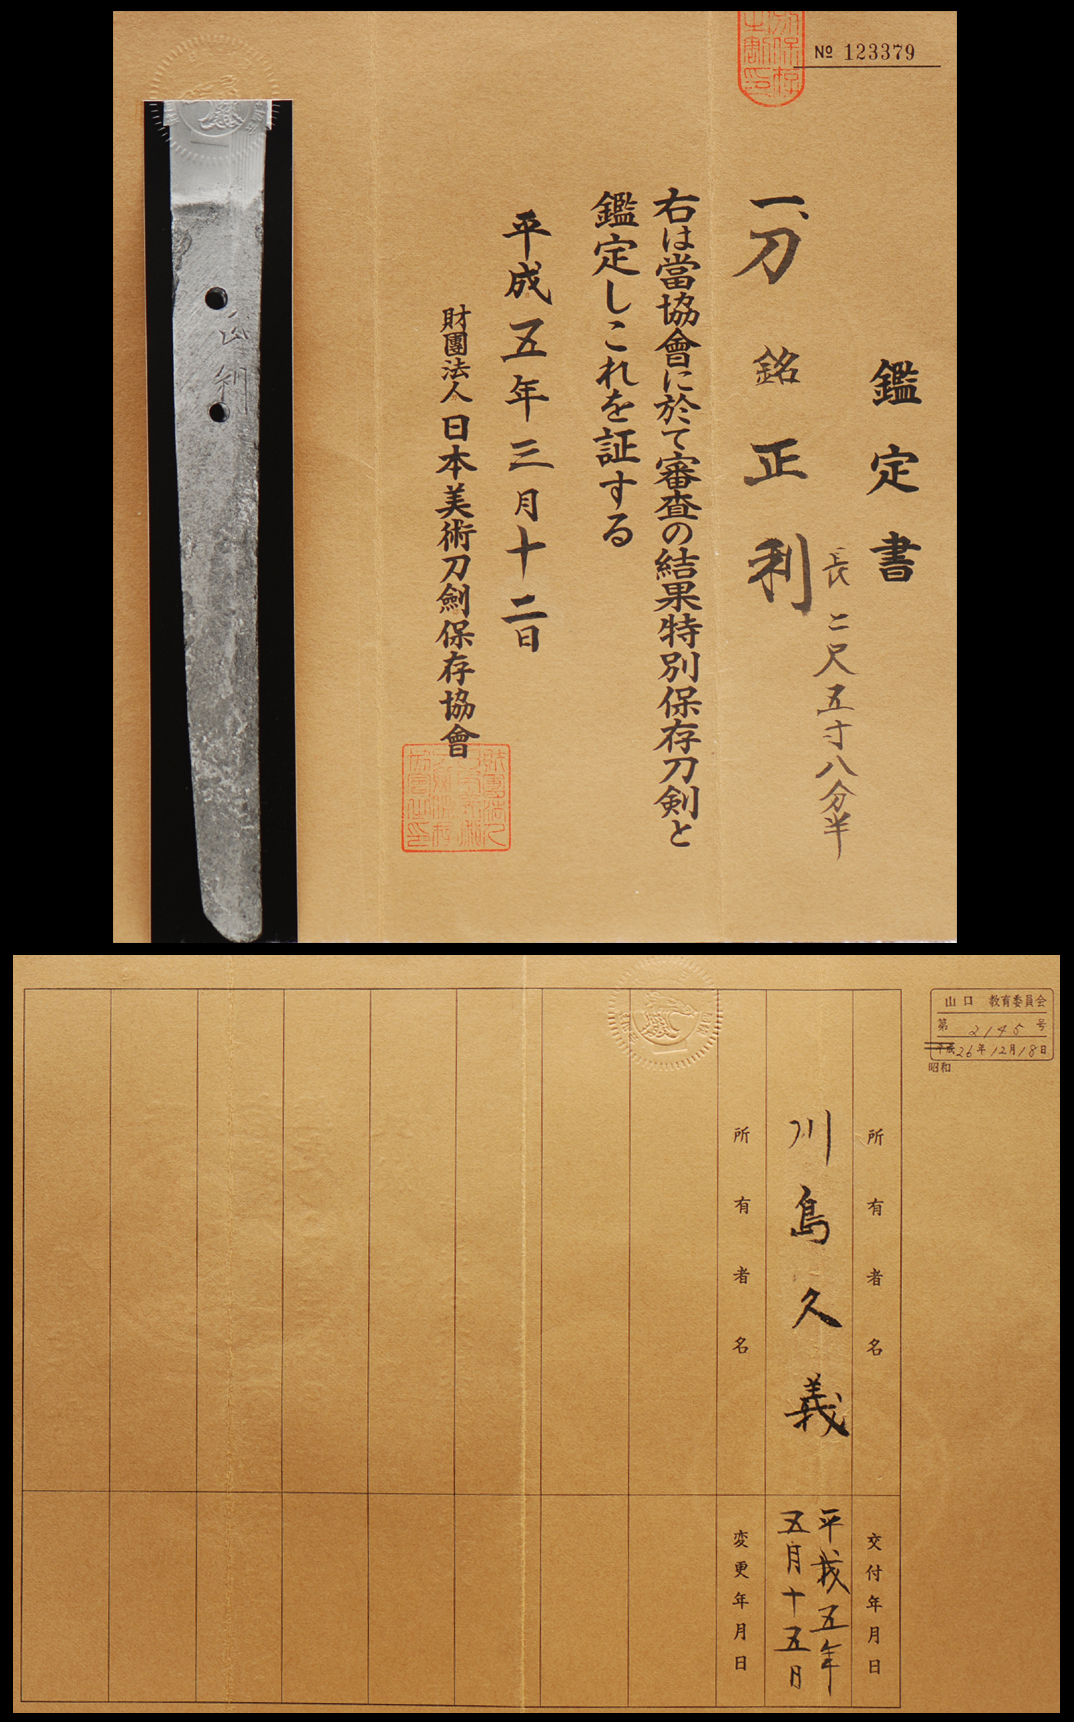 No 123379
鑑定書
長二尺五寸八分半
一、刀 銘 正利
右は當協會に於て審査の結果特別保存刀剣と
鑑定しこれを証する
平成五年三月十二日
財團法人日本美術刀劍保存協會
正利
山口 教育委員会
第 2145 号
平成26年12月18日
昭和
所有者名
川島久義
所有者名
交付年月日
平成五年
五月十五日
変更年月日